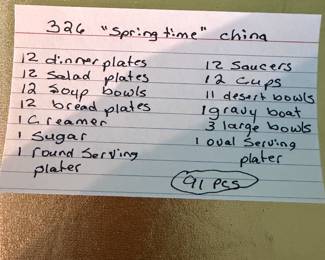 326 "Spring time" china
12 dinner plates
12 Salad plates
12 Soup bowls
12 bread plates
1 Creamer
1 Sugar
1 round Serving
plater
12 Saucers
12 Cups
11 desert bowls
1 gravy boat
3 large bowls
1 oval Serving
plater
91 pcs